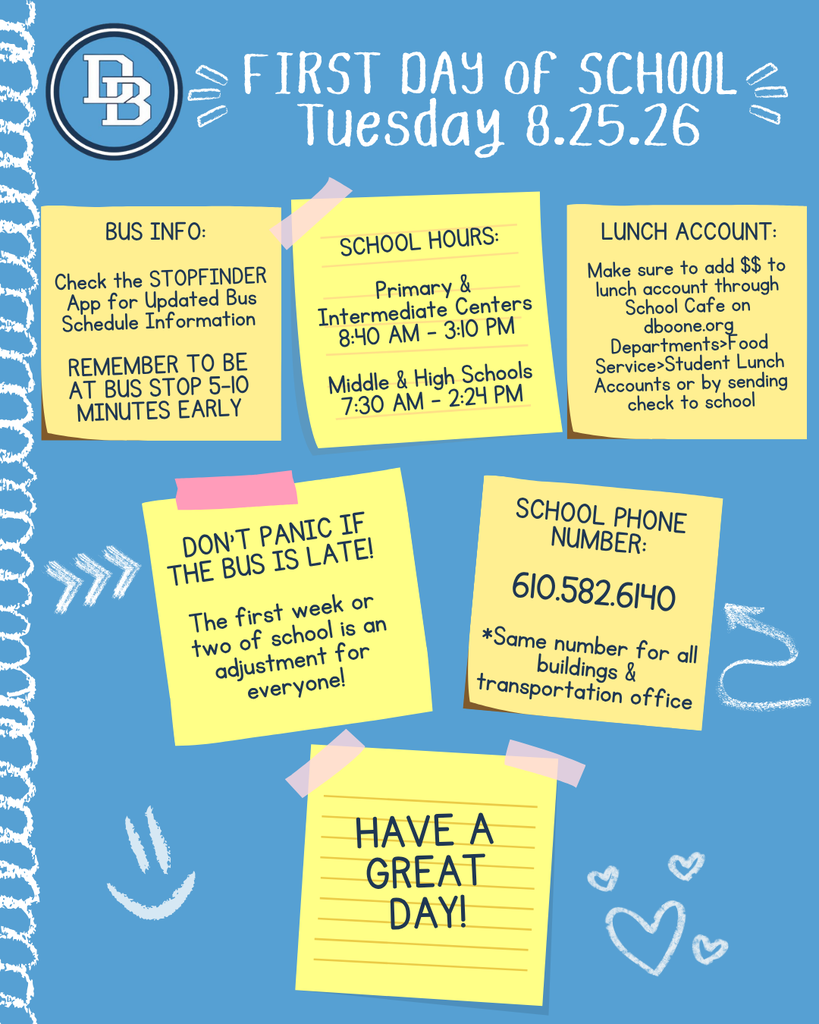 DB
FIRST DAY OF SCHOOL
Tuesday 8.25.26
BUS INFO:
Check the STOPFINDER
App for Updated Bus
Schedule Information
REMEMBER TO BE
AT BUS STOP 5-10
MINUTES EARLY
SCHOOL HOURS:
Primary &
Intermediate Centers
8:40 AM - 3:10 PM
Middle & High Schools
7:30 AM - 2:24 PM
LUNCH ACCOUNT:
Make sure to add $$ to
lunch account through
School Cafe on
dboone.org
Departments>Food
Service>Student Lunch
Accounts or by sending
check to school
DON'T PANIC IF
THE BUS IS LATE!
The first week or
two of school is an
adjustment for
everyone!
SCHOOL PHONE
NUMBER:
610.582.6140
*Same number for all
buildings &
transportation office
HAVE A
GREAT
DAY!